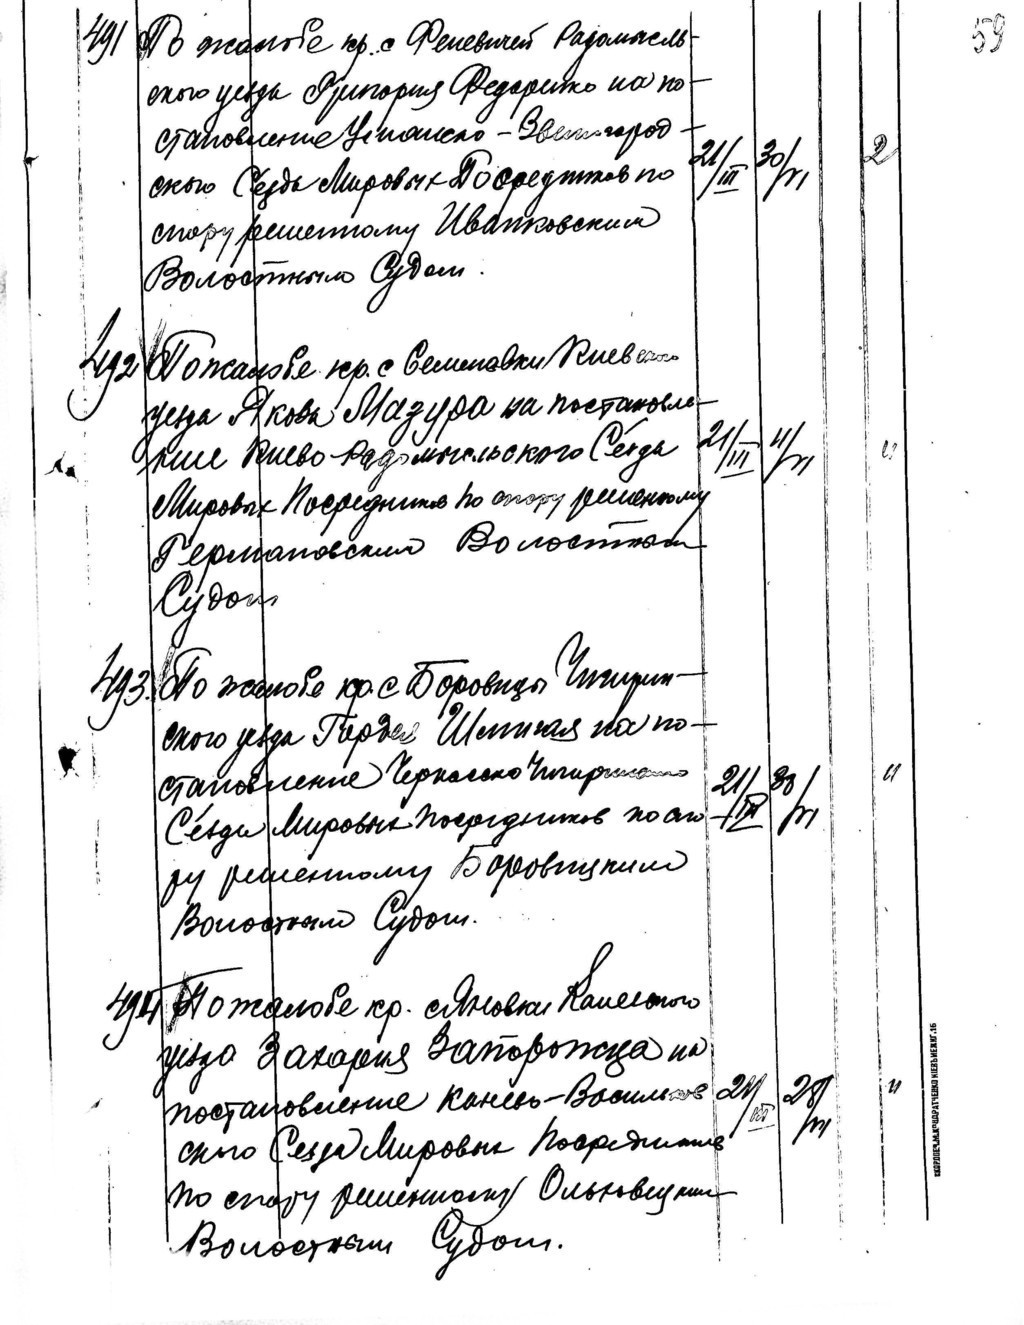 59
491 По жалобе кр. с Феневичей Радомысль-
ского уезда Григория Федоренко на по-
становление Уманско-Звенигород-
ского Сѣзда Мировых Посредников по
спору решенному Иванковским
Волостным Судом.
21/III 30/VI 2
492 По жалобе кр. с Семеновки Киевского
уезда Якова Мазура на постановле-
ние Киево-Радомысльского Сѣзда
Мировых Посредников по спору решенному
Германовским Волостным
Судом
21/III 11/VI "
493. По жалобе кр. с Боровицы Чигирин-
ского уезда Гордея на по-
становление Черкасско Чигиринского
Сѣзда Мировых Посредников по спо-
ру решенному Боровицким
Волостным Судом.
21/III 30/VI "
494 По жалобе кр. с Яновки Каневского
уезда Захария Запорожца на
постановление Канево-Васильков
ского Сѣзда Мировых Посредников
по спору решенному Ольховецким
Волостным Судом.
21/III 28/VI "